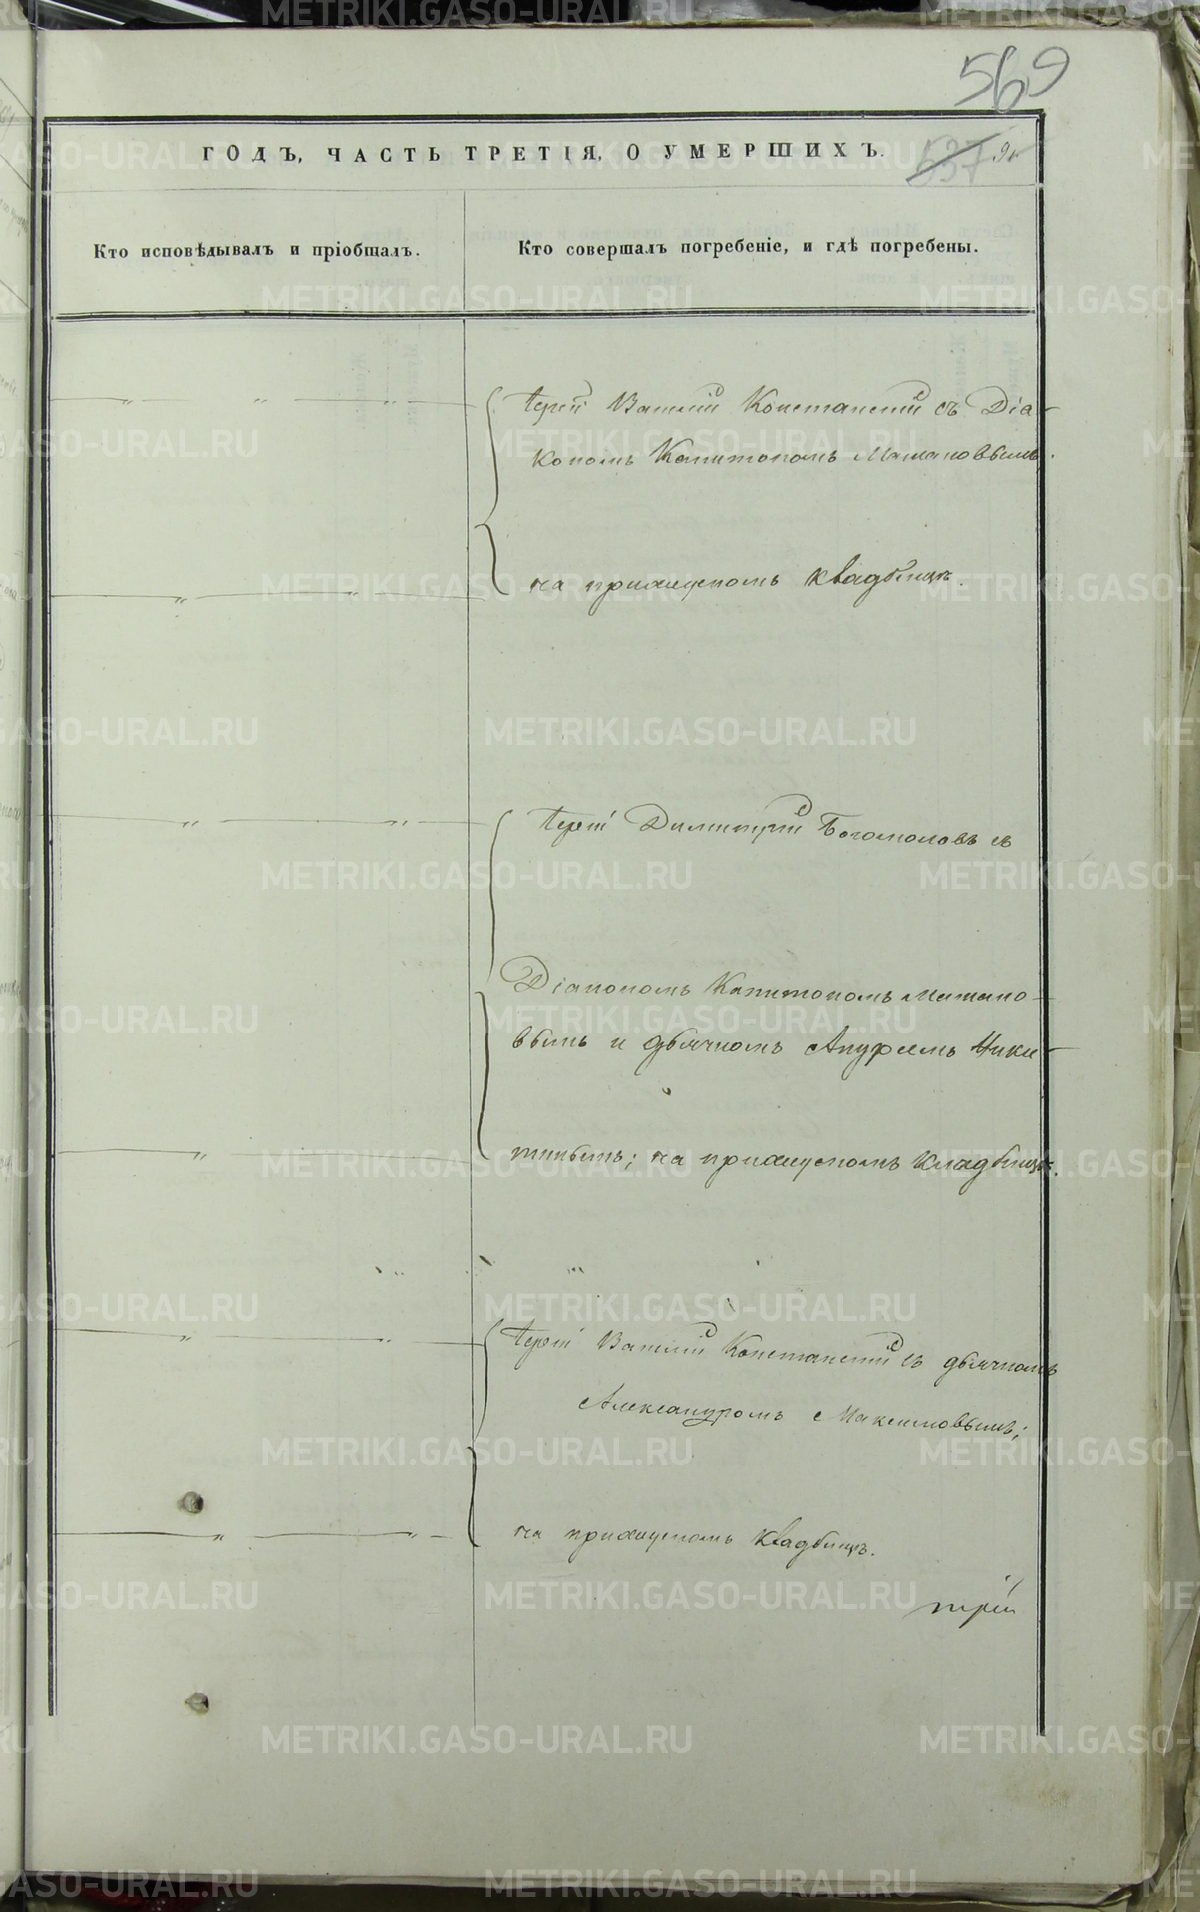 569
ГОДЪ, ЧАСТЬ ТРЕТІЯ, О УМЕРШИХЪ.
537
Кто исповѣдывалъ и пріобщалъ.
Кто совершалъ погребеніе, и гдѣ погребены.
Іерей Василій Констанскій съ Діа-
кономъ Капитономъ Мамановымъ.
на приходскомъ квадбищѣ.
Іерей Димитрій Богомоловъ съ
Діакономъ Капитономъ Мамано-
вымъ и дьячкомъ Андреемъ Ники-
тинымъ; на приходскомъ кладбищѣ.
Іерей Василій Констанскій съ дьячкомъ
Александромъ Максимовымъ;
на приходскомъ квадбищѣ.
METRIKI.GASO-URAL.RU